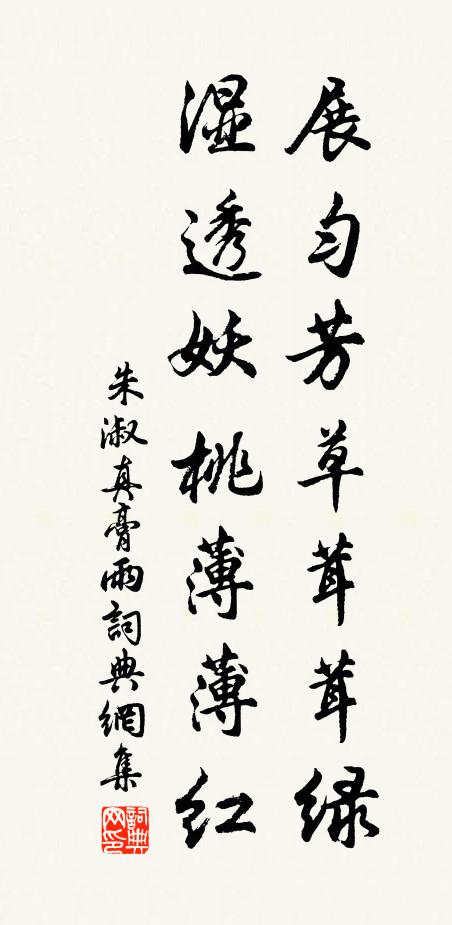 展匀芳草茸茸绿
湿透妖桃薄薄红
朱淑真膏雨詞典網集
詞典网印